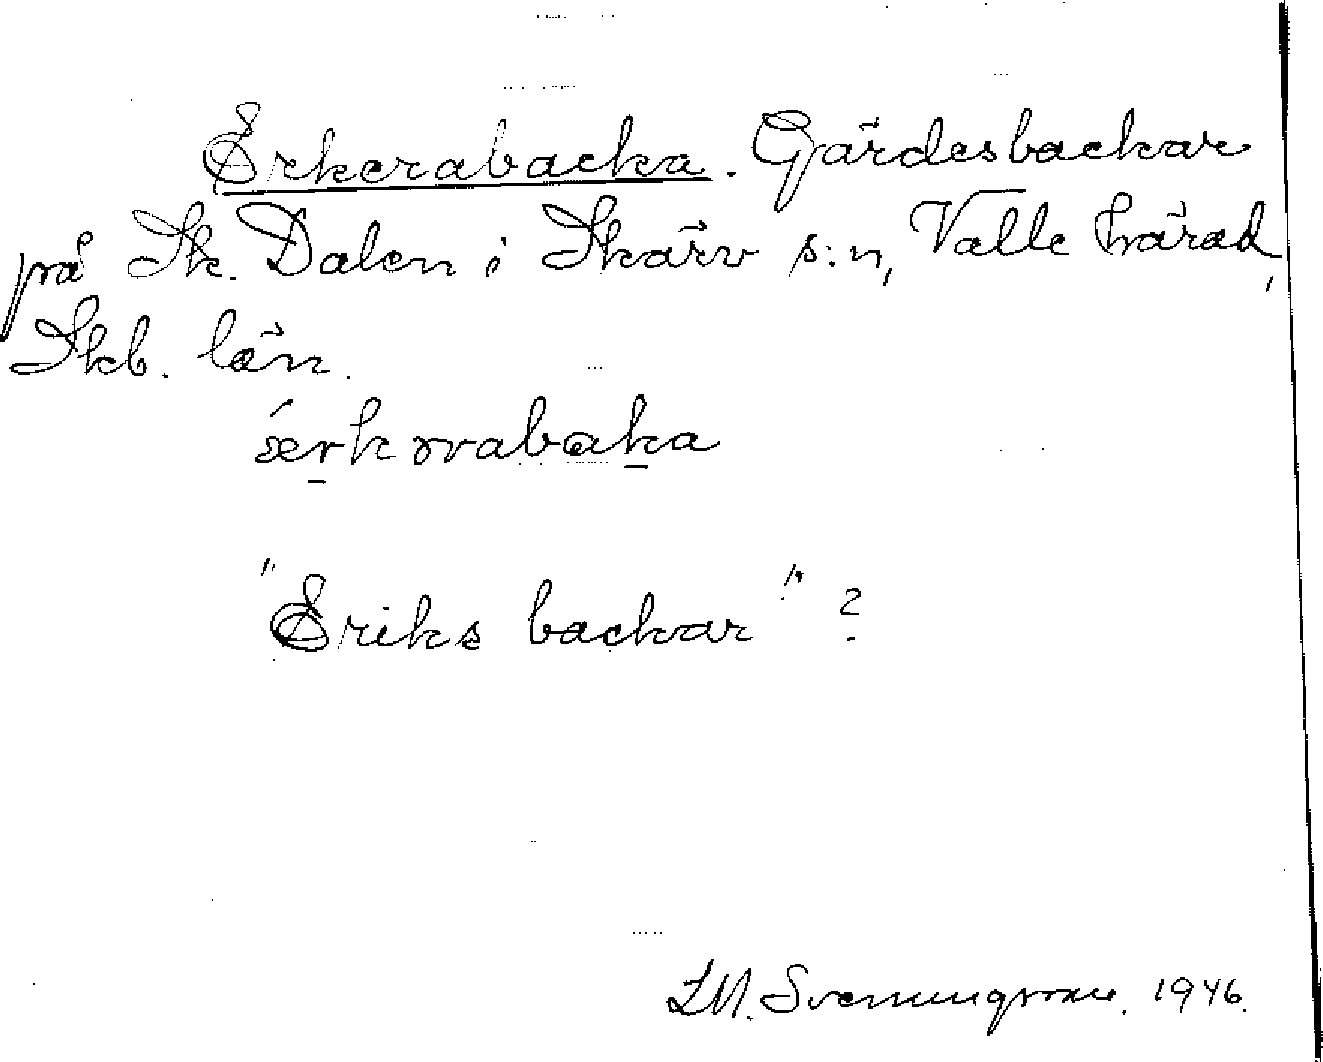 Erkerabacka. Gärdesbackar
på Sk. Dalen i Skärv s:n, Valle härad,
Skb. län.
ærkərabaka
"Eriks backar"?
L.M. Svenungsson. 1946.